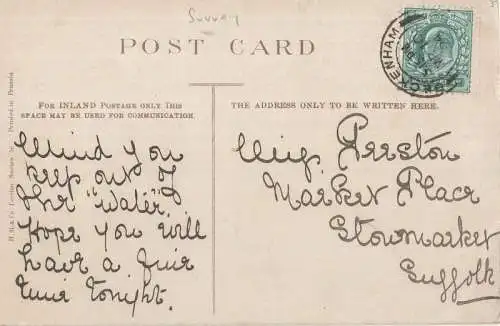 Surrey
POST CARD
FOR INLAND POSTAGE ONLY THIS
SPACE MAY BE USED FOR COMMUNICATION.
THE ADDRESS ONLY TO BE WRITTEN HERE.
Mind you
keep out of
the "water".
Hope you will
have a fine
time tonight.
Miss Preston
Market Place
Stowmarket
Suffolk
Printed in Prussia